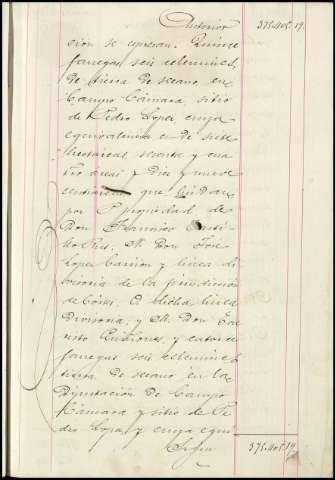 Anterior 375.Hol. 19.
cion se espresan. Quince
fanegas seis celemines
de tierra de secano en
Campo Cámara, sitio
de Pedro Lopez cuya
equivalencia es de siete
hectáreas, sesenta y cua
tro areas y diez y nueve
centiareas que lindan
por P propiedad de
Don Francisco
M. Don José
Lopez Carrion y linea di
visoria de la jurisdiccion
de dicha linea
divisoria, y M. Don Faus
to y catorce
fanegas seis celemines
tierra de secano en la
Diputación de Campo
Cámara y sitio de Pe
dro Lopez y cuya equi
Sigue 375.Hol. 19